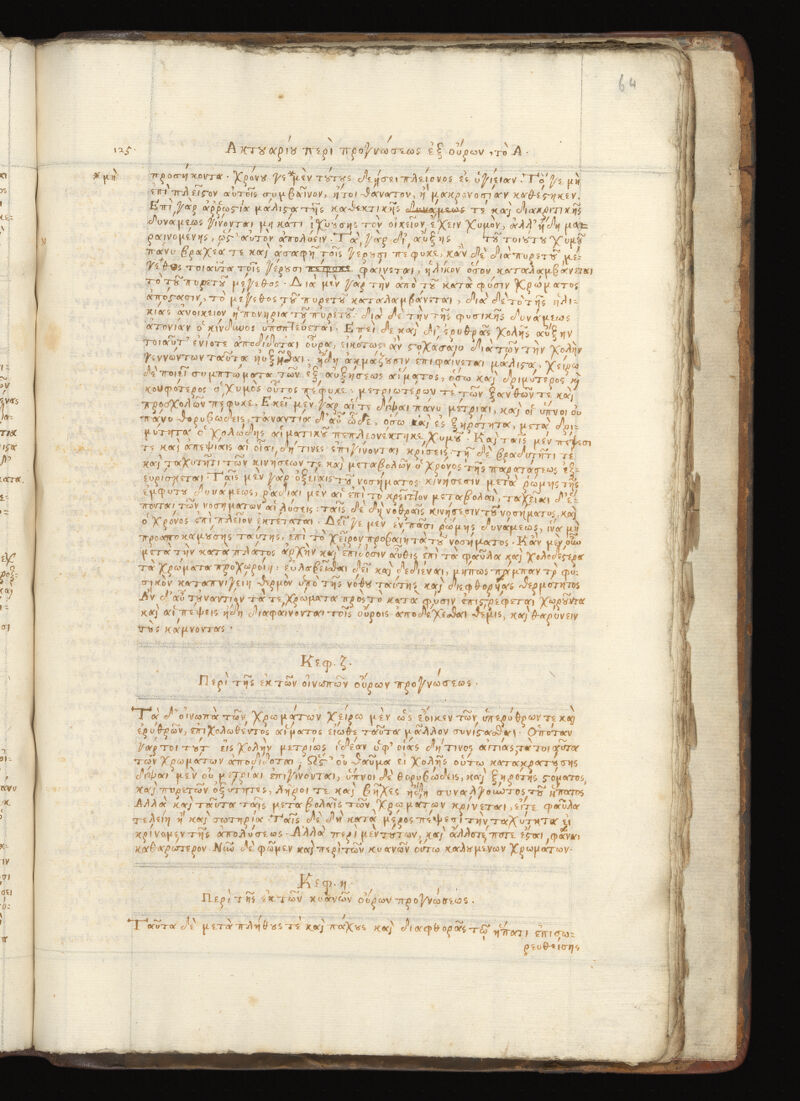 64
125.
Ἀκτουαρίου περὶ προγνώσεως ἐξ οὔρων, τὸ Α.
προσήκοντα. χρόνου γε μὲν τούτοις δεήσει πλείονος ἐς ὑγίειαν. Τό γε μὴ
ἐπιπλεῖστον αὐτοῖς συμβαῖνον, ἤτοι θάνατον, ἢ μακρονοσίαν καθέστηκεν.
Ἐπεὶ γὰρ ἀῤῥωστία μάλιστα τῆς καθεκτικῆς δυνάμεως τε καὶ διακριτικῆς
δυνάμεως γίνονται μηκέτι ἰσχυούσης τὸν οἰκεῖον ἔχειν χυμόν, ἀλλ' ἤδη μα-
ραινομένης, ὡς αὐτὸν ἀπολύειν. Τὰ γὰρ δι' αὔξης τοῦ τοιούτου χυμοῦ
πάνυ βραχέα τε καὶ ἀσαφῆ τοῖς γέρουσι πέφυκε, κἂν δὲ διὰ πυρετοῦ μέ-
γεθος τοιαῦτα τοῖς γέρουσι πέφυκε φαίνεται, ἡλίκον ὅσον καταλαμβάνεται
τὸ τοῦ πυρετοῦ μέγεθος. Διὰ μὲν γὰρ τὴν ἀπὸ τοῦ κατὰ φύσιν χρώματος
ἀπόστασιν, τὸ μέγεθος τοῦ πυρετοῦ καταλαμβάνεται, διὰ δὲ τὸ τῆς ἡλι-
κίας ἀνοίκειον ἡ πονηρία τοῦ πυρετοῦ. διὰ δὲ τὴν τῆς φυσικῆς δυνάμεως
ἀτονίαν ὁ κίνδυνος ὑποπτεύεται. Ἐπεὶ δὲ καὶ δι' ἐρυθρᾶς χολῆς αὔξην
τοιαῦτ' ἐνίοτε ἀποδίδοται οὖρα, εἰκότως ἂν στοχάσαιο διὰ τῶν τὴν χολὴν
γεννώντων ταῦτα ηὐξῆσθαι. ἤδη ἀκμάζουσιν ἐπιφαίνεται μάλιστα, χείρω
δὲ ποιεῖ συμπτώματα τῶν ἐξ αὐξήσεως αἵματος, ὅσῳ καὶ δριμύτερος καὶ
κουφότερος ὁ χυμὸς οὗτος πέφυκε, μετριωτέρων τε τῶν ξανθῶν τε καὶ
προσχόλων πέφυκε. Ἐκεῖ μὲν γὰρ αἵ τε δίψαι πάνυ μέτριαι, καὶ οἱ ὕπνοι οὐ
πάνυ θορυβώδεις, τἀναντία δ' αὖ ὧδε, ὅσῳ καὶ ἐς ξηρότητα, μετὰ δρι-
μύτητα ὁ χολώδης αἱματικοῦ πεπλεονέκτηκε χυμοῦ. Καὶ ταῖς μὲν πέψεσι
τε καὶ ἀπεψίαις αἱ οἷαι δή τινες ἐπιγίνονται κρίσεις τῇ δὲ βραδυτῆτί τε
καὶ ταχυτῆτι τῶν κινήσεών τε καὶ μεταβολῶν ὁ χρόνος τῆς παρατάσεως ἐξ-
ευρίσκεται. Ταῖς μὲν γὰρ ὀξείαις τοῦ νοσήματος κινήσεσιν μετὰ ῥώμης τῆς
ἐμφύτου δυνάμεως, ῥᾴδιαι μὲν αἱ ἐπὶ τὸ κρεῖττον μεταβολαὶ, ταχεῖαι δ' ἕ-
πονται τῶν νοσημάτων αἱ λύσεις. ταῖς δὲ δὴ νωθραῖς κινήσεσιν τοῦ νοσήματος καὶ
ὁ χρόνος ἐπὶ πλεῖον ἐκτέταται. Δεῖ γε μὲν ἐν πᾶσι ῥώμης δυνάμεως, ἵνα μὴ
προαποκαμούσης ταύτης, ἐπὶ τὸ χεῖρον προβαίη τὰ τοῦ νοσήματος. Κἂν μὲν οὕτω
μετὰ τὴν κατὰ πλάτος ἀρχὴν καὶ ἐπίδοσιν αὖθις ἐπὶ τὰ φαῦλα καὶ χολωδέστερα
τὰ χρώματα προχωροίη. εὐλαβεῖσθαι δεῖ καὶ δεδιέναι, μήπως πάμπαν τὸ φυ-
σικὸν καταπνίγειη θερμὸν ὑπὸ τῆς νόθου ταύτης καὶ διεφθορυίας θερμότητος
Ἂν δ' αὖ τοὐναντίον τά τε χρώματα πρὸς τὸ κατὰ φύσιν ἐπιστρέφεται χωροῦντα
καὶ αἱ πέψεις ἤδη διαφαίνονται τοῖς οὔροις ἀποδέχεσθαι θέμις, καὶ θαρύνειν
τοὺς κάμνοντας.
Κεφ. ζ.
Περὶ τῆς ἐκ τῶν οἰνωπῶν οὔρων προγνώσεως.
Τὰ δ' οἰνωπὰ τῶν χρωμάτων χείρω μὲν ὡς ἔοικεν τῶν ὑπερύθρων τε καὶ
ἐρυθρῶν, ἐπιχολωθέντος αἵματος εἴωθε ταῦτα μᾶλλον συνίστασθαι. Ὁπόταν
γάρ τοι τοῦτ' εἰς χολὴν μετρίως ἰδέαν ὑφ' οἵας δή τινος αἰτίας τὰ τοιαῦτα
τῶν χρωμάτων ἀποδίδοται, Ὥστ' οὐ θαῦμα εἰ χολῆς οὕτω κατακρατούσης
δίψαι μὲν οὐ μέτριαι ἐπιγίνονται, ὕπνοι δὲ θορυβώδεις, καὶ ξηρότης στόματος,
καὶ πυρετῶν ὀξύτητες, λῆροί τε καὶ βῆχες ἤδη συναλγοῦντος τοῦ ἥπατος
Ἀλλὰ καὶ ταῦτα ταῖς μεταβολαῖς τῶν χρωμάτων κρίνεται, εἴτε φαῦλα
τελείη ἢ καὶ σωτηρία Ταῖς δὲ δὴ κατὰ μέρος πέψεσι τὴν ταχύτητα
κρίνομεν τῆς ἀπολύσεως. Ἀλλὰ περὶ μὲν τούτων, καὶ ἄλλοτέ ποτε ἔσται φάναι
καθαρώτερον. Νῦν δὲ φῶμεν καὶ περὶ τῶν κυανῶν οὕτω καλουμένων χρωμάτων.
Κεφ. η
Περὶ τῆς ἐκ τῶν κυανῶν οὔρων προγνώσεως.
Ταῦτα δὲ μετὰ πλήθους τε καὶ πάχους καὶ διαφθορᾶς τῷ ἥπατι ἐπισω-
ρευθείσης